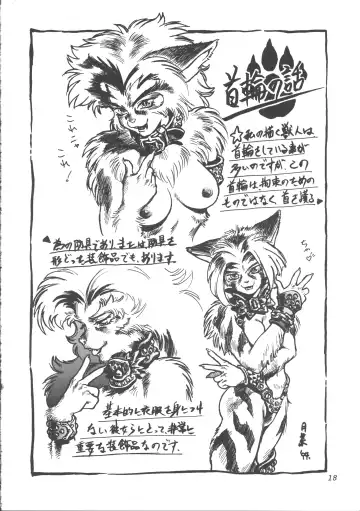 首輪の話
☆私の描く獣人は
首輪をしている事が
多いのですが、この
首輪は拘束のための
ものではなく首を護る
為の防具であり、または防具を
形どった装飾品でも、あります。
基本的に衣服を身につけ
ない彼女らにとって、非常に
重要な装飾品なのです。
18